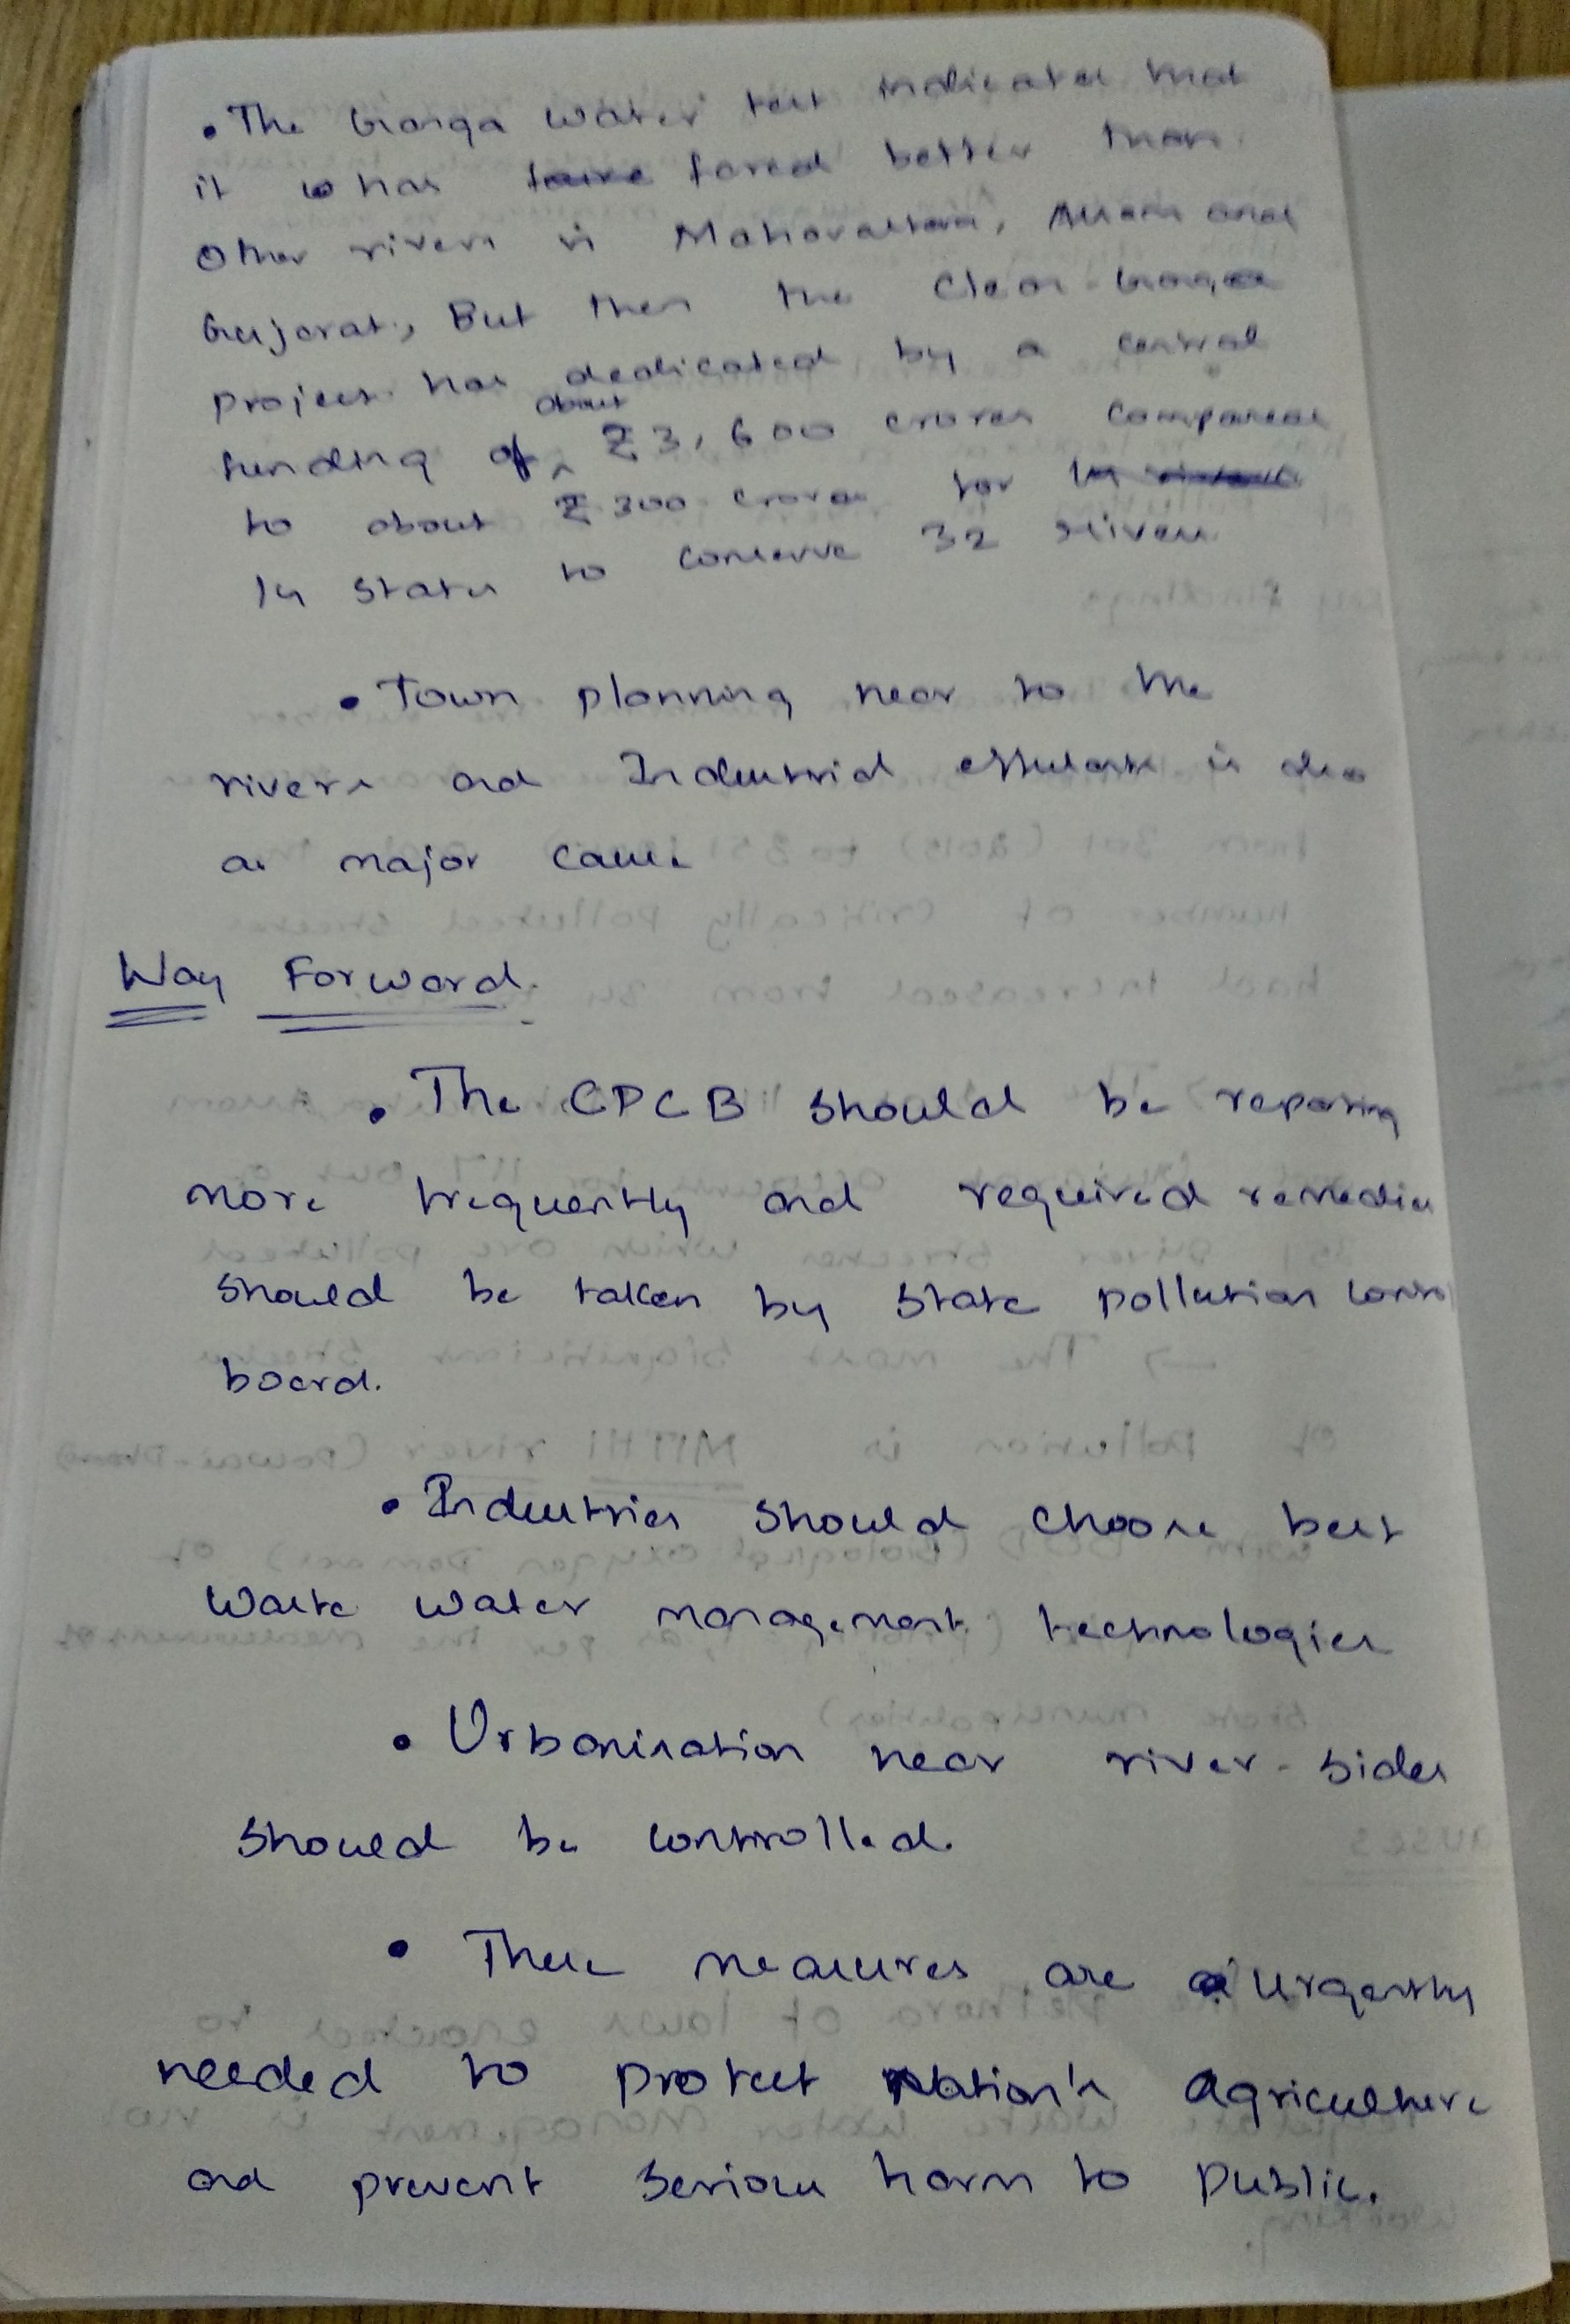 • The Ganga Water test indicates that
it has fared better than
Other rivers in Maharastra, Assam and
Gujarat, But then the Clean Ganga
project has dedicated by a central
funding of about ₹3,600 crores compared
to about ₹300 crores for
14 states to conserve 32 rivers.
• Town planning near to the
rivers and Industrial effulents is also
a major cause
Way Forward.
• The CPCB should be reporting
more frequently and required remedies
should be taken by state pollution control
board.
• Industries should choose best
Waste water management technologies
• Urbanisation near river-sides
should be controlled.
• These measures are urgently
needed to protect Nation's Agriculture
and prevent serious harm to public.